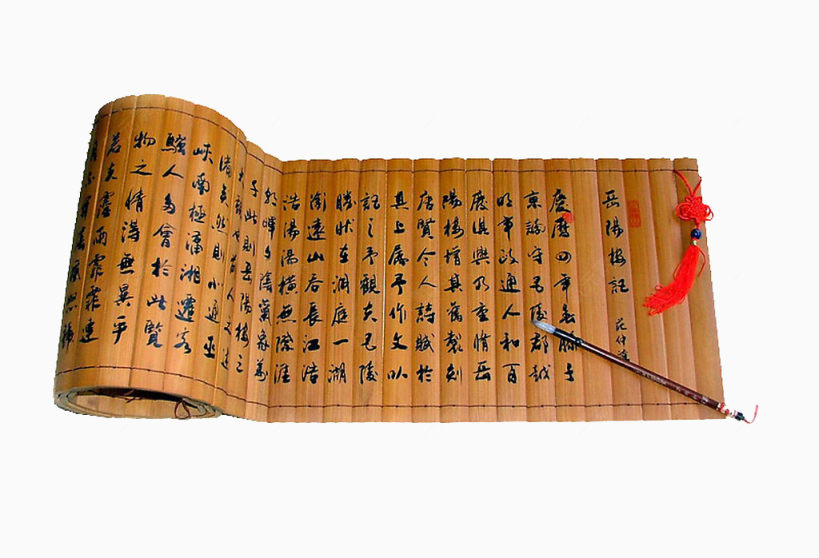 岳陽樓記 范仲淹
慶曆四年春滕子
京謫守巴陵郡越
明年政通人和百
廢俱興乃重脩岳
陽樓增其舊製刻
唐賢今人詩賦於
其上屬予作文以
記之予觀夫巴陵
勝狀在洞庭一湖
銜遠山吞長江浩
浩湯湯橫無際涯
朝暉夕陰氣象萬
千此則岳陽樓之
大觀也前人之述
備矣然則北通巫
峽南極瀟湘遷客
騷人多會於此覽
物之情得無異乎
若夫霪雨霏霏連